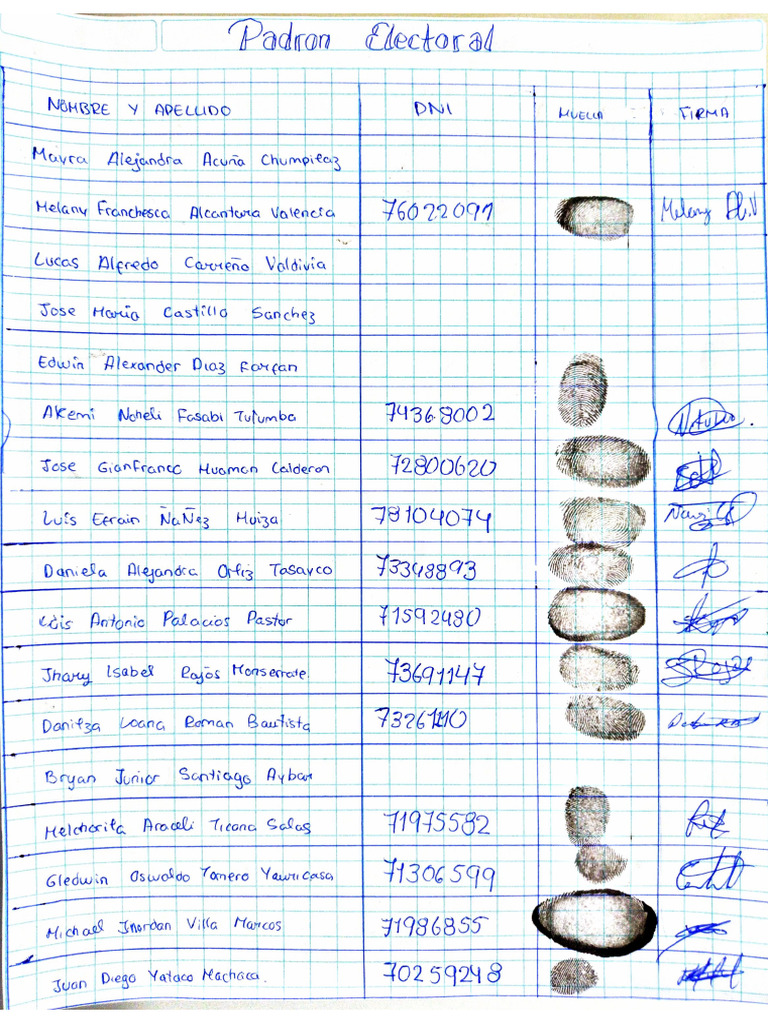 Padron Electoral
NOMBRE Y APELLIDO DNI HUELLA FIRMA
Mayra Alejandra Acuña Chumpitaz
Melany Franchesca Alcantara Valencia 76022091 Melany
Lucas Alfredo Carreño Valdivia
Jose Maria Castillo Sanchez
Edwin Alexander Diaz Farfan
Akemi Noheli Fasabi Tutumba 74368002
Jose Gianfranco Huaman Calderon 72800620
Luis Efrain Ñañez Muiza 78104074
Daniela Alejandra Ortiz Tasayco 73348893
Luis Antonio Palacios Pastor 71592480
Jhary Isabel Rojas Monserrate. 73691147
Danitza Loana Roman Bautista
Bryan Junior Santiago Aybar
Melchorita Araceli Ticona Salas 71975582
Gledwin Oswaldo Tanero Yauricasa 71306599
Michael Jhordan Villa Marcos 71986855
Juan Diego Yataco Machaca. 70259248